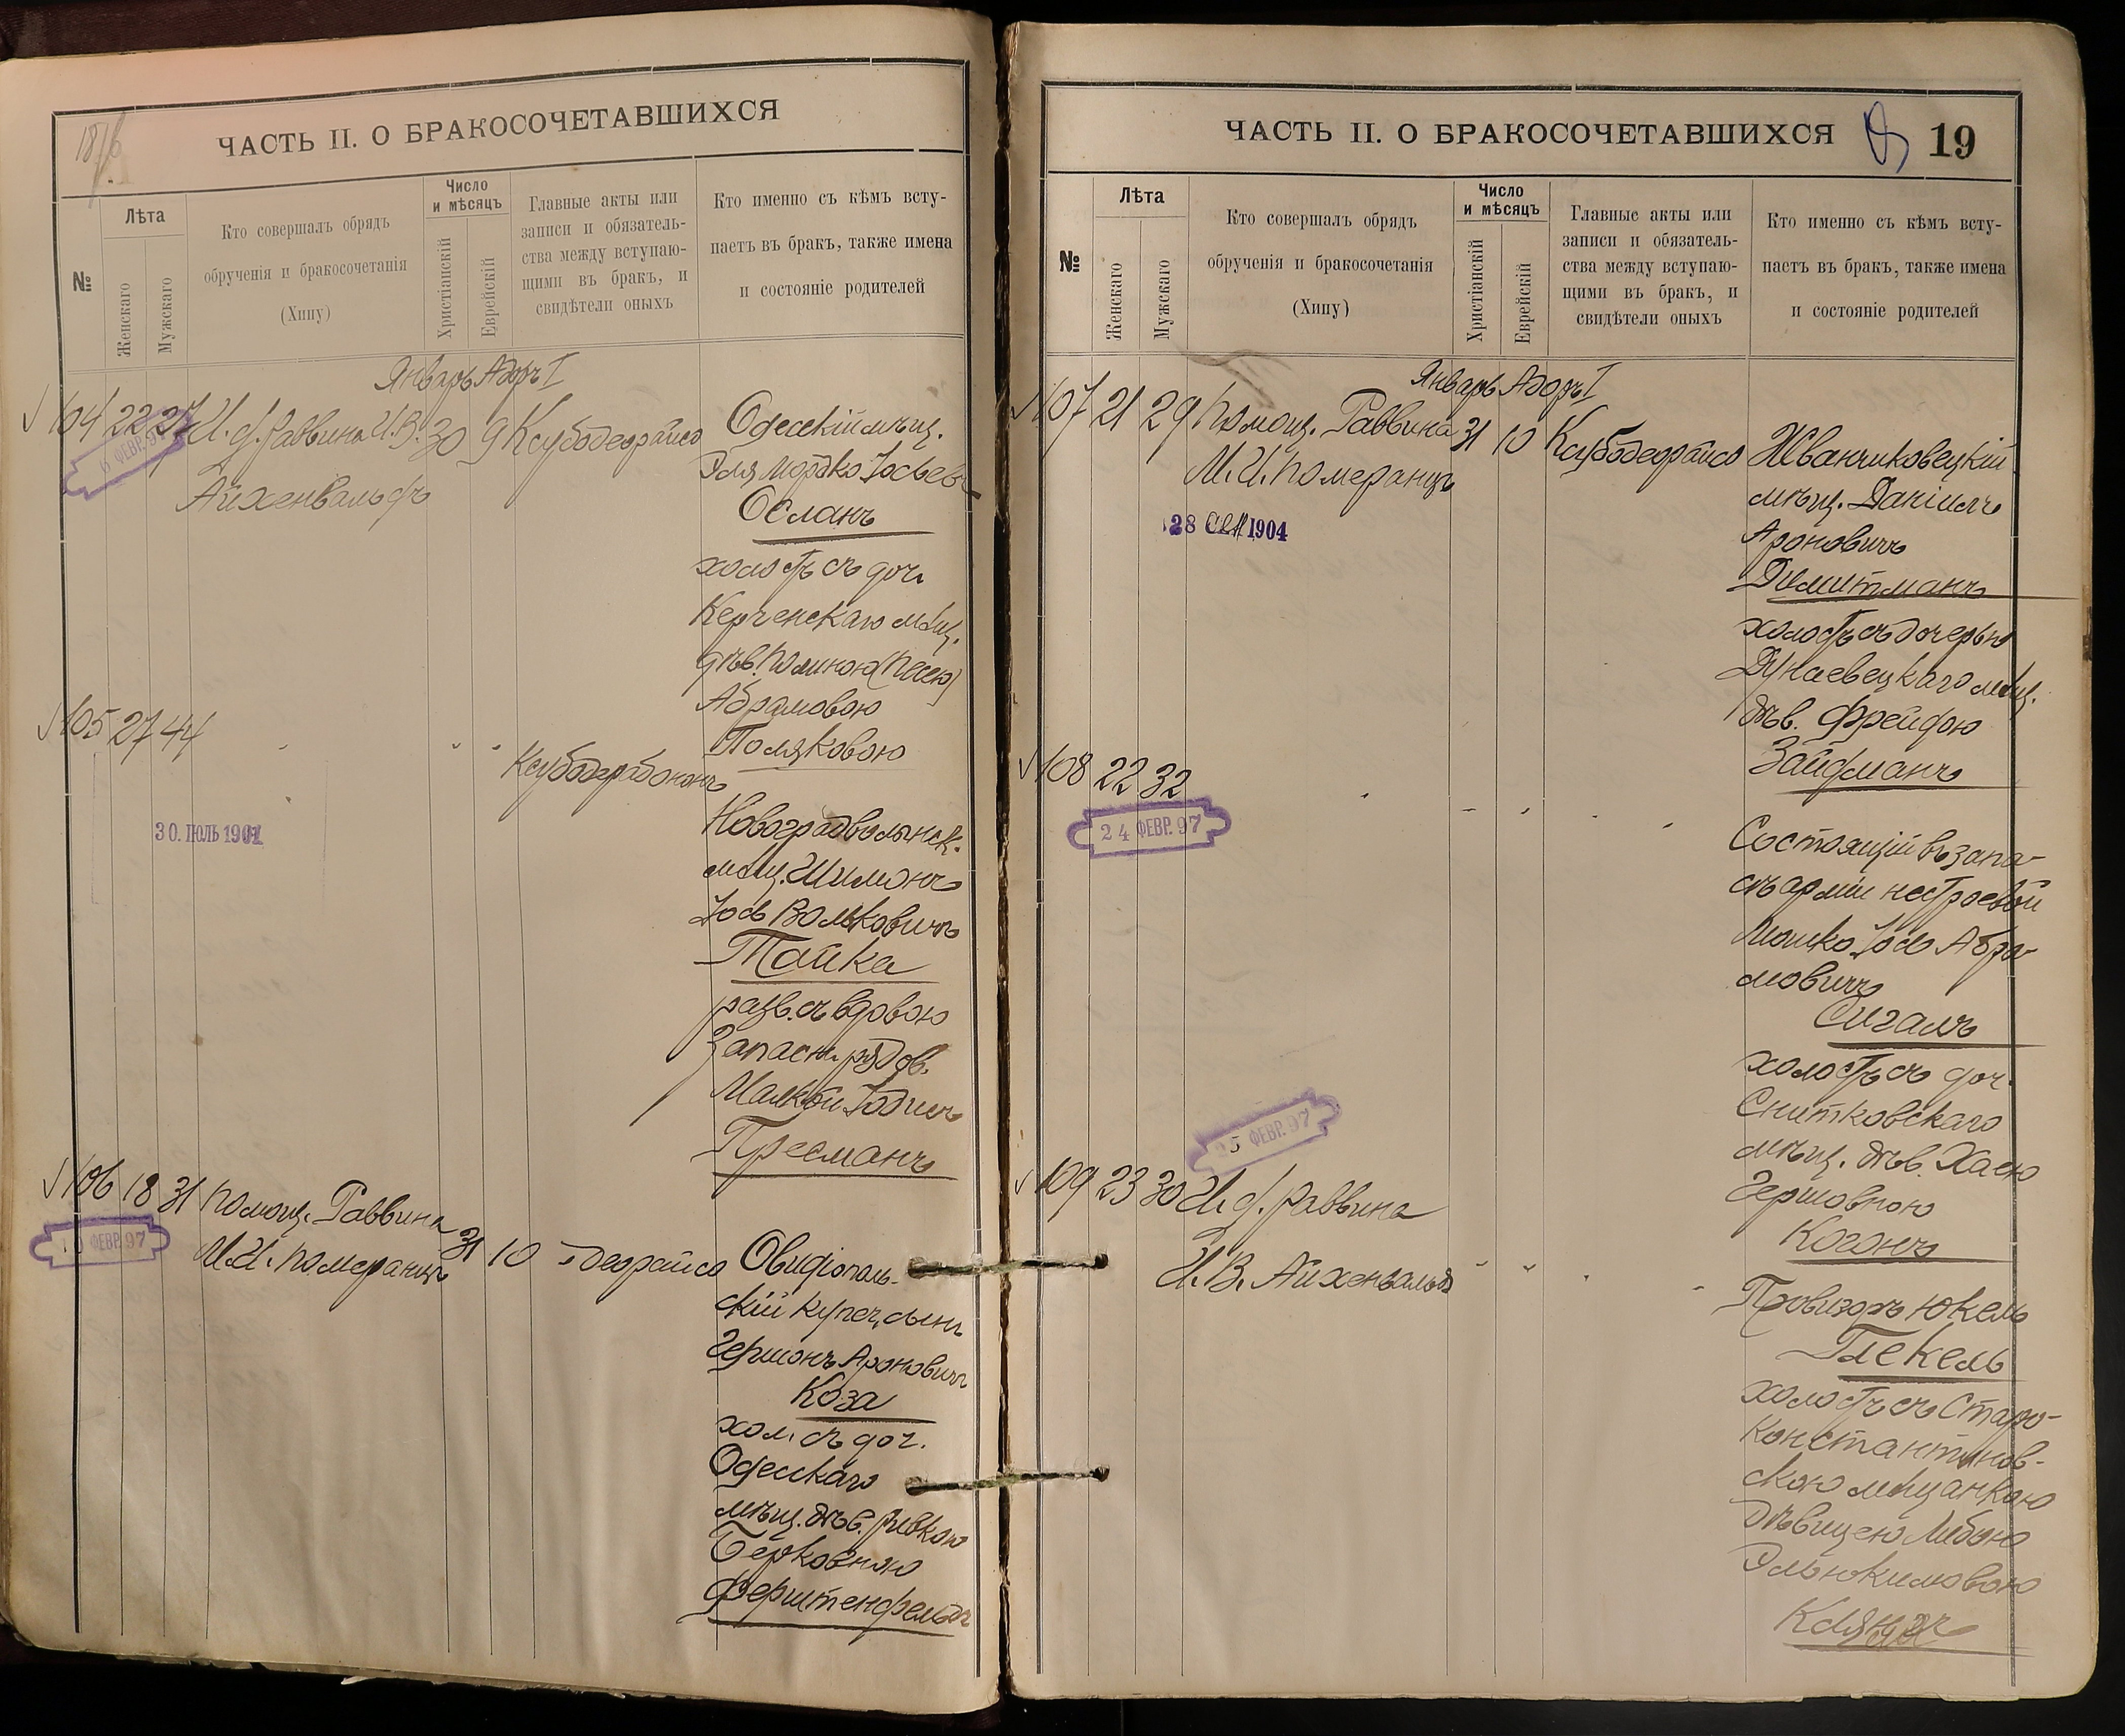 1876
ЧАСТЬ II. О БРАКОСОЧЕТАВШИХСЯ
№
Лѣта
Женскаго
Мужскаго
Кто совершалъ обрядъ
обрученія и бракосочетанія
(Хипу)
Число
и мѣсяцъ
Христіанскій
Еврейскій
Главные акты или
записи и обязатель-
ства между вступаю-
щими въ бракъ, и
свидѣтели оныхъ
Кто именно съ кѣмъ всту-
паетъ въ бракъ, также имена
и состояніе родителей
Январь Адоръ I
104 22 27 И. д. Раввина И. В. 30 9 Ксубодеорайсо
Айхенвальдъ
6 ФЕВР. 97
Одесскій мѣщ.
Эля Мордко Iосьев.
Осланъ
холостъ съ доч.
Керченскаго мѣщ.
дѣв. Полиною (Песею)
Абрамовою
Поляковою
105 27 44 Ксубодерабононъ
30. ІЮЛЬ 1901
Новоградволынск.
мѣщ. Шимонъ
Iось Вольковичъ
Тайка
разв. съ вдовою
Запасн. рядов.
Малкой Iодлевъ
Пресманъ
106 18 31 Помощ. Раввина 31 10 деорайсо
М. И. Померанцъ
ФЕВР. 97
Овидіополь-
скій купеч. сынъ
Гершонъ Ароновичъ
Коза
хол. съ доч.
Одесскаго
мѣщ. дѣв. Ривкою
Берковною
Ферштенфельдъ
ЧАСТЬ II. О БРАКОСОЧЕТАВШИХСЯ
19
№
Лѣта
Женскаго
Мужскаго
Кто совершалъ обрядъ
обрученія и бракосочетанія
(Хипу)
Число
и мѣсяцъ
Христіанскій
Еврейскій
Главные акты или
записи и обязатель-
ства между вступаю-
щими въ бракъ, и
свидѣтели оныхъ
Кто именно съ кѣмъ всту-
паетъ въ бракъ, также имена
и состояніе родителей
Январь Адоръ I
107 21 29 Помощ. Раввина 31 10 Ксубодеорайсо
М. И. Померанцъ
28 СЕН 1904
Жванчиковецкій
мѣщ. Даніилъ
Ароновичъ
Димитманъ
холостъ съ дочерью
Дунаевецкаго мѣщ.
дѣв. Фрейдою
Зайдманъ
108 22 32
24 ФЕВР. 97
Состоящій въ запа-
сѣ арміи нестроевой
Мошко Iось Абра-
мовичъ
Сигалъ
холостъ съ доч.
Снитковскаго
мѣщ. дѣв. Хаею
Гершовною
Коганъ
25 ФЕВР. 97
109 23 30 И. д. Раввина
И. В. Айхенвальдъ
Провизоръ Юкель
Глекель
холостъ съ Старо-
константинов-
скою мѣщанкою
дѣвицею Либою
Эльюкимовою